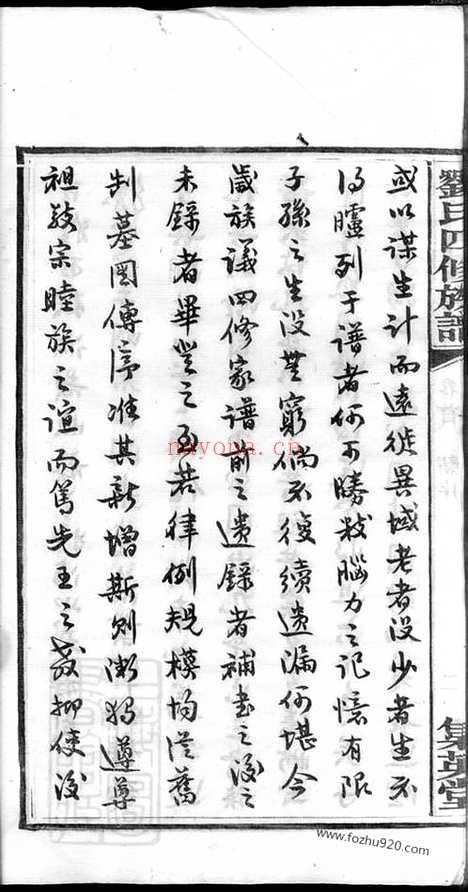 劉氏四修族譜
集英堂
或以谋生计而遠徙異域老者没少者生不
得臚列于谱者何可勝数腦力之记憶有限
子孫之生没無窮倘不復續遗漏何堪今
歲族议四修家谱前之遗録者補书之後之
未録者畢登之至若律例规模均従舊
制墓図傳序准其新增斯则渐遵
祖敬宗睦族之誼而篤先王之教抑使後
nayona.cn
www.fozhu920.com